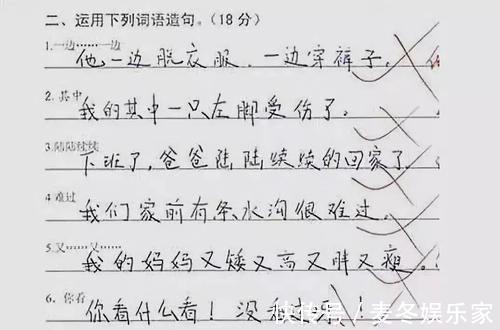 二、运用下列词语造句。(18分)
1.一边……一边
他一边脱衣服，一边穿裤子。
2. 其中
我的其中一只左脚受伤了。
3.陆陆续续
下班了,爸爸陆陆续续的回家了
4 难过
我们家前有条水沟很难过。
5.又……又……
我的妈妈又矮又高又胖又瘦。
6. 你看
你看什么看！没
快传号/麦冬娱乐家